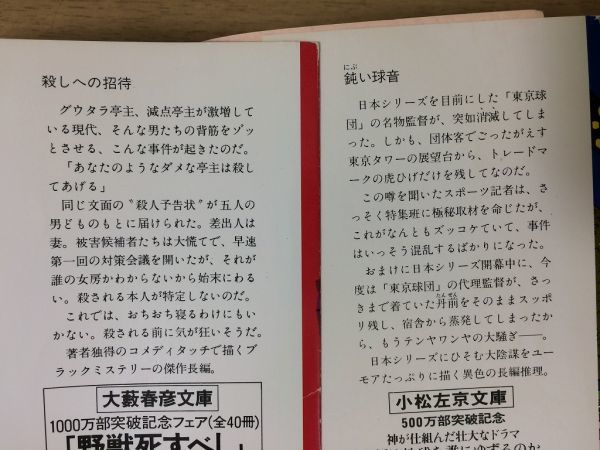 殺しへの招待
グウタラ亭主、減点亭主が激増して
いる現代、そんな男たちの背筋をゾッ
とさせる、こんな事件が起きたのだ。
「あなたのようなダメな亭主は殺し
てあげる」
同じ文面の〝殺人予告状〟が五人の
男どものもとに届けられた。差出人は
妻。被害候補者たちは大慌てで、早速
第一回の対策会議を開いたが、それが
誰の女房かわからないから始末にわる
い。殺される本人が特定しないのだ。
これでは、おちおち寝るわけにもい
かない。殺される前に気が狂いそうだ。
著者独得のコメディタッチで描くブ
ラックミステリーの傑作長編。
大藪春彦文庫
1000万部突破記念フェア(全40冊)
「野獣死すべし」
にぶ
鈍い球音
日本シリーズを目前にした「東京球
団」の名物監督が、突如消滅してしま
った。しかも、団体客でごったがえす
東京タワーの展望台から、トレードマ
ークの虎ひげだけを残してなのだ。
この噂を聞いたスポーツ記者は、さ
っそく特集班に極秘取材を命じたが、
これがなんともズッコケていて、事件
はいっそう混乱するばかりになった。
おまけに日本シリーズ開幕中に、今
度は「東京球団」の代理監督が、さっ
きまで着ていた丹前をそのままスッポ
リ残し、宿舎から蒸発してしまったか
ら、もうテンヤワンヤの大騒ぎ――。
日本シリーズにひそむ大陰謀をユー
モアたっぷりに描く異色の長編推理。
小松左京文庫
500万部突破記念
神が仕組んだ壮大なドラマ